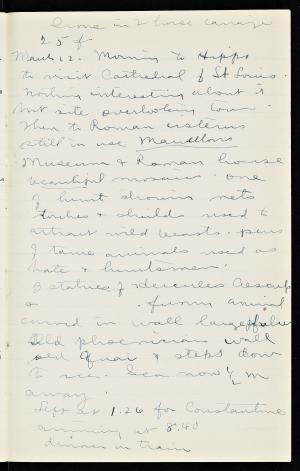 Drove in 2 horse carriage
25 f
March 12. Morning to Hippo
to visit Cathedral of St Louis.
Nothing interesting about it
but site overlooking town.
Then to Roman cisterns
still in use
Museum & Roman house
beautiful mosaics. one
of hunt showing nets
torches & shields used to
attract wild beasts. pens
of tame animals used as
bate & huntsmen.
3 statues of Hercules Aesculp
& . funny animal
carved in wall large
old phoenician wall
old Quai & steps down
to sea. Sea now 1/2 m
away.
Left at 1.26 for Constantine
arriving at 8.40
dinner in train